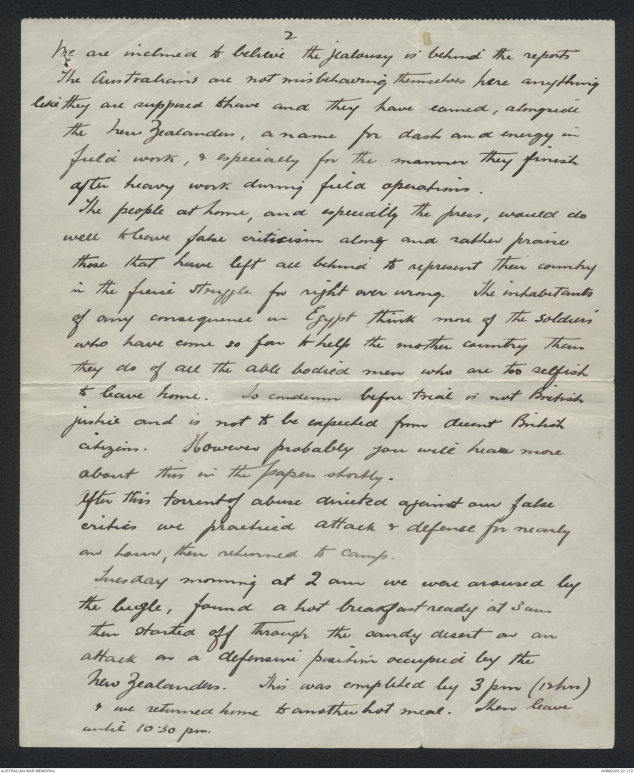 2
We are inclined to believe the jealousy is behind the reports
The Australians are not misbehaving themselves here anything
like they are supposed to have and they have earned, alongside
the New Zealanders, a name for dash and energy in
field work, & especially for the manner they finish
after heavy work during field operations.
The people at home, and especially the press, would do
well to leave false criticism along and rather praise
those that have left all behind to represent their country
in the fierce struggle for right over wrong. The inhabitants
of any consequence in Egypt think more of the soldiers
who have come so far to help the mother country than
they do of all the able bodied men who are too selfish
to leave home. To condemn before trial is not British
justice and is not to be expected from decent British
citizens. However probably you will hear more
about this in the papers shortly.
After this torrent of abuse directed against our false
critics we practiced attack & defense for nearly
an hour, then returned to camp.
Tuesday morning at 2 am we were aroused by
the bugle, found a hot breakfast ready at 3 am
then started off through the sandy desert on an
attack on a defensive position occupied by the
New Zealanders. This was completed by 3 pm (12 hrs)
& we returned home to another hot meal. Then leave
until 10.30 pm.
AUSTRALIAN WAR MEMORIAL